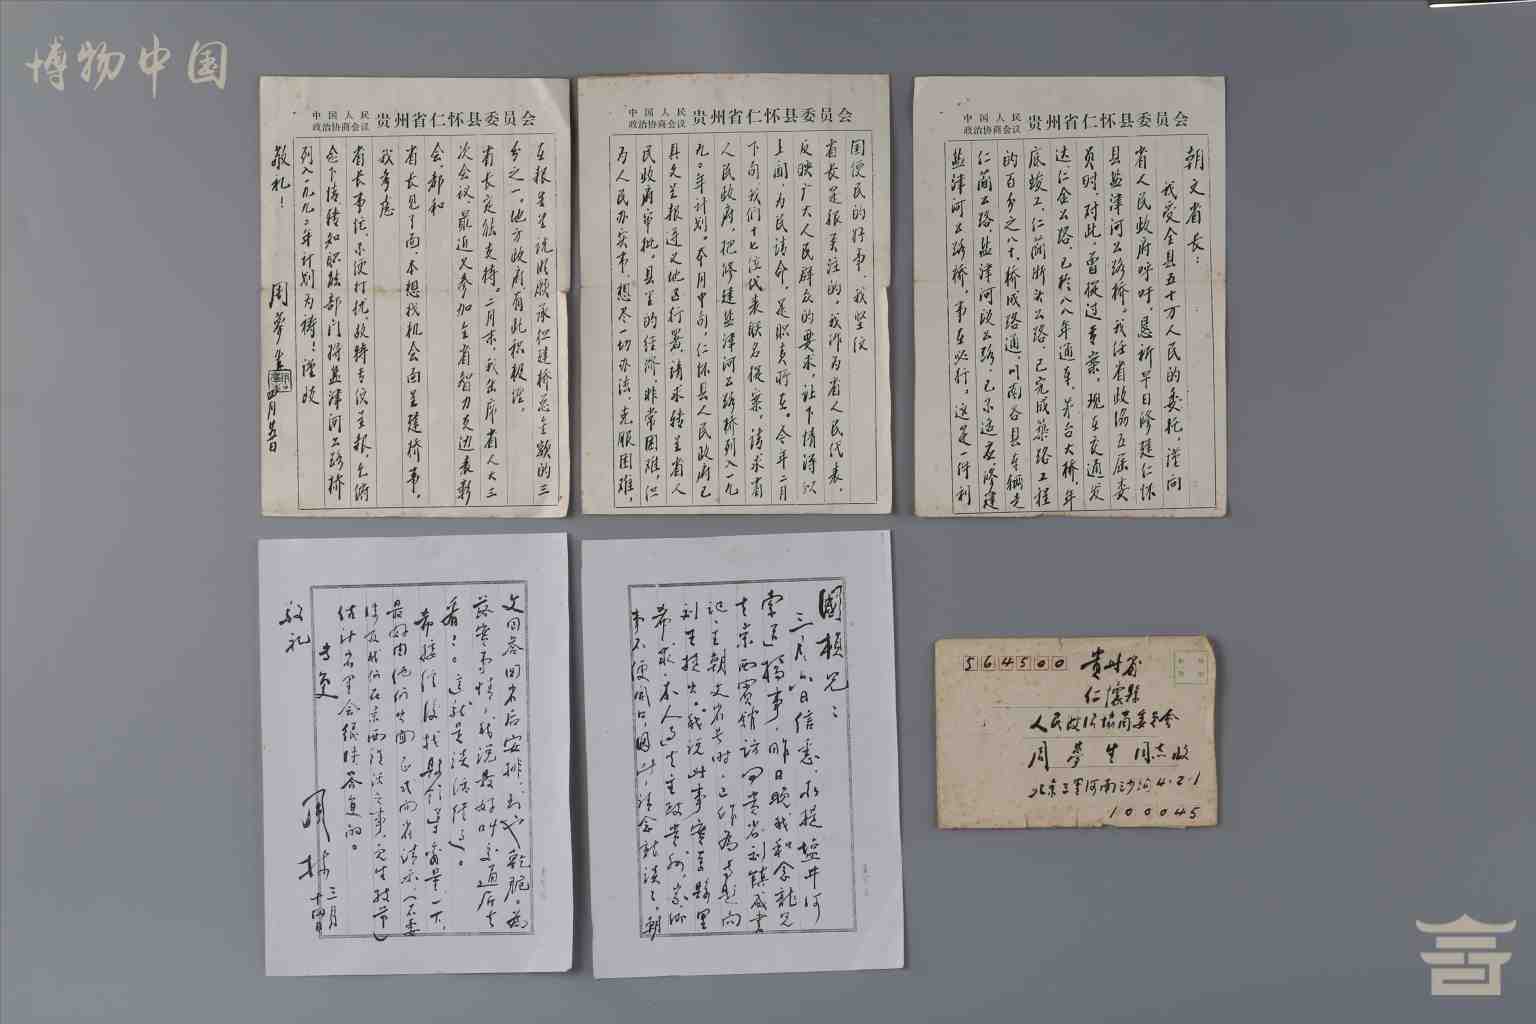 博物中国
中国人民
政治协商会议
贵州省仁怀县委员会
朝文省长：
我受全县五十万人民的委托，谨向
省人民政府呼吁，恳祈早日修建仁怀
县盐津河公路桥。我任省政协五届委
员时，对此，曾提过专案。现在交通发
达，仁金公路，已于八八年通车，茅台大桥，年
底竣工，仁茼断头公路，已完成筑路工程
的百分之八十，桥成路通，川南各县车辆走
仁茼公路，盐津河段公路，已不适应，修建
盐津河公路桥，事在必行，这是一件利
中国人民
政治协商会议
贵州省仁怀县委员会
国便民的好事，我坚信
省长是很关注的。我作为省人民代表，
反映广大人民群众的要求，让下情得以
上闻，为民请命，是职责所在。今年二月
下旬，我们十七位代表联名提案，请求省
人民政府，把修建盐津河公路桥列入一九
九〇年计划。本月中旬，仁怀县人民政府已
具文呈报遵义地区行署，请求转呈省人
民政府审批。县里的经济，非常困难，但
为人民办实事，想尽一切办法，克服困难，
中国人民
政治协商会议
贵州省仁怀县委员会
在报告里说明愿承担建桥总金额的三
分之一。地方政府有此积极性，
省长定能支持。二月末，我出席省人大三
次会议，最近又参加全省智力支边表彰
会，都和
省长见了面，本想找机会面呈建桥事，
我考虑
省长事忙，不便打扰，故特专信呈报，乞俯
念下情，转知职能部门，将盐津河公路桥
列入一九九〇年计划为祷！谨致
敬礼！
周梦生
四月廿五日
國楨兄：
三月六日信悉，所提盐井河
常运桥事，昨日晚我和念龙兄
去京西宾馆访问贵省刘正威书
记、王朝文省长时，已作为专题向
刘王提出。我说此事实系县里
希求，本人过去主政贵州，家乡
事不便开口，因此，请念龙谈谈。朝
文同志回省后安排，
落实事情，我说最好叫交通厅去
看看。这就是谈话经过。
希接信后找县领导商量一下，
最好由他们出面正式向省请示，
涉及我们在京西谈话之事，
估计省里会很快答复的。
专复
敬礼
周林
三月
十四日
564500
贵州省
仁懷縣
人民政治協商委員会
周夢生同志收
北京三里河南沙沟4.2.1
100045